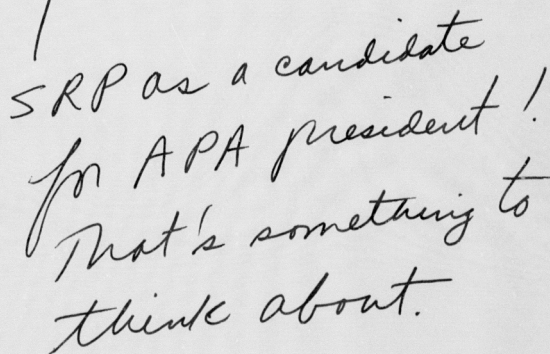 SRP as a candidate
for APA president!
That's something to
think about.